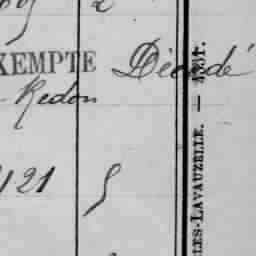 2
EXEMPTE Décédé
Redon
121 5
LES-LAVAUZELLE. — 4251.